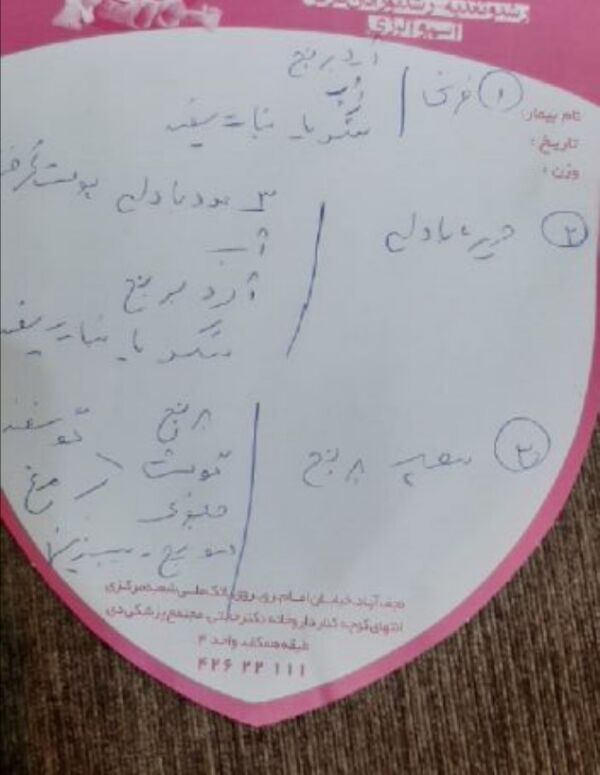 آسم و آلرژی
نام بیمار:
تاریخ:
وزن:
① فرنی
آرد برنج
آب
شکر یا نبات سفید
② حریره بادام
۳ عدد بادام پوست گرفته
آب
آرد برنج
شکر یا نبات سفید
③ سوپ برنج
برنج
گوشت گوسفند
مرغ
هویج
نجف آباد، خیابان امام، روبروی بانک ملی شعبه مرکزی
انتهای کوچه کنار داروخانه دکتر، مجتمع پزشکی دی
طبقه همکف، واحد ۴
۴۲۶ ۲۲ ۱۱۱